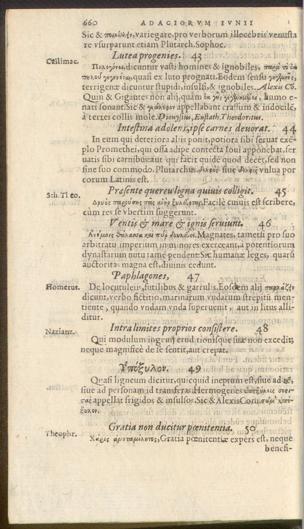 660 ADAGIORVM IVNII
Sic & variegare, pro verborum illecebris venusta
re vsurparunt etiam Plutarch. Sophoc.
Lutea progenies. 43
dicuntur vasti homines & ignobiles,
quasi ex luto prognati. Eodem sensu
terrigenæ dicuntur stupidi, insulsi, & ignobiles. Alexis
Quin & Gigantes non alij, quàm humo e-
nati sonant. Sic & appellabant crassum & indocile,
à terreis collis mole. Dionysius, Eustath. Theodoritus.
Intestina adolens, ipse carnes deuorat. 44
In eum qui deteriora aliis ponit, potiora sibi seruat exẽ-
plo Promethei, qui ossa adipe contecta Ioui apponebat, ser
uatis sibi carnibus: aut qui facit quide quod decet, sed non
sine suo commodo. Plutarchus. siue vulua por
corum Latinis est.
Sch. Theo.
Præsente quercu ligna quiuis colligit. 45
Facile cuiuis est scribere,
cùm res se vbertim suggerunt.
Ventis & mare & ignis seruiunt. 46
Magnates, tametsi pro suo
arbitratu imperium in minores exerceant, à potentiorum
dynastarum nutu tamẽ pendent: Sic humanæ leges, quarũ
auctoritas magna est, diuinis cedunt.
Paphlagones. 47
Homerus.
De locutuleis, futilibus & garrulis. Eosdem alij
dicunt, verbo fictitio, marinarum vndarum strepitũ men-
tiente, quando vndam vnda superuenit, aut in littus alli-
ditur.
Intra limites proprios consistere. 48
Nazianz.
Qui modulum ingenij eruditionísque suæ non excedit,
neque magnificè de se sentit, aut crepat.
Ὑπόξυλον. 49
Quasi ligneum dicitur, quicquid ineptum est, siue ad rẽ,
siue ad personam id transferas: Hermogenes
appellat frigidos & insulsos: Sic & Alexis Comicus
Gratia non ducitur pœnitentia. 50
Theophr.
Gratia pœnitentiæ expers est, neque
benefi-